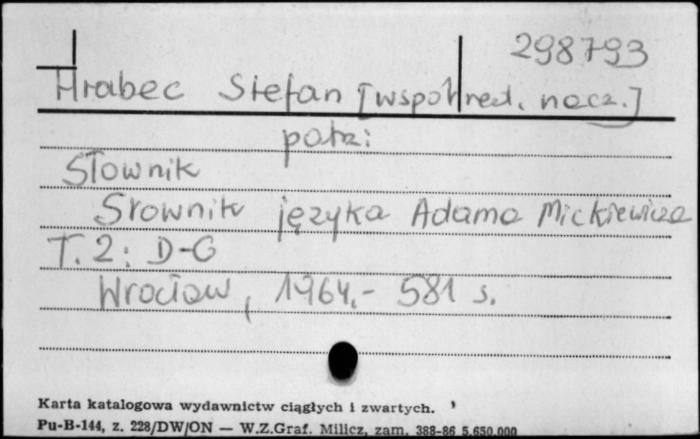 298793
Hrabec Stefan [współred. nacz.]
patrz:
Słownik
Słownik języka Adama Mickiewicza
T. 2: D-G
Wrocław, 1964.- 581 s.
Karta katalogowa wydawnictw ciągłych i zwartych.
Pu-B-144, z. 228/DW/ON — W.Z.Graf. Milicz, zam. 388-86 5.650.000